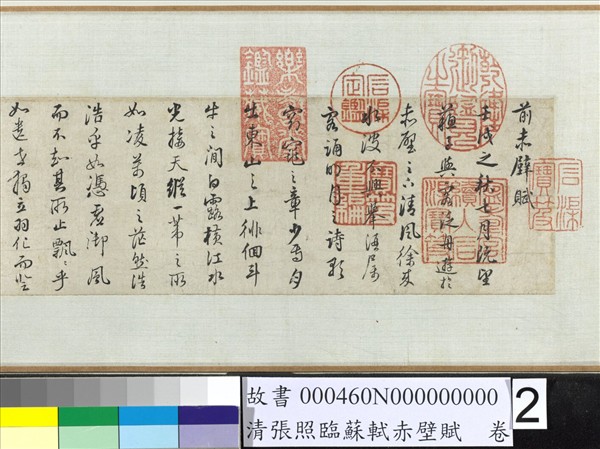 前赤壁賦
壬戌之秋七月既望
蘓子與客泛舟遊於
赤壁之下清風徐來
水波不興舉酒屬
客誦明月之詩歌
窈窕之章少焉月
出東山之上徘徊斗
牛之間白露橫江水
光接天縱一葦之所
如凌萬頃之茫然浩
浩乎如憑虛御風
而不知其所止飄〻乎
如遺世獨立羽化而登
石渠寶笈
乾隆御覽之寶
石渠定鑑
寶笈重編
故書 000460N000000000
清張照臨蘇軾赤壁賦 卷
2